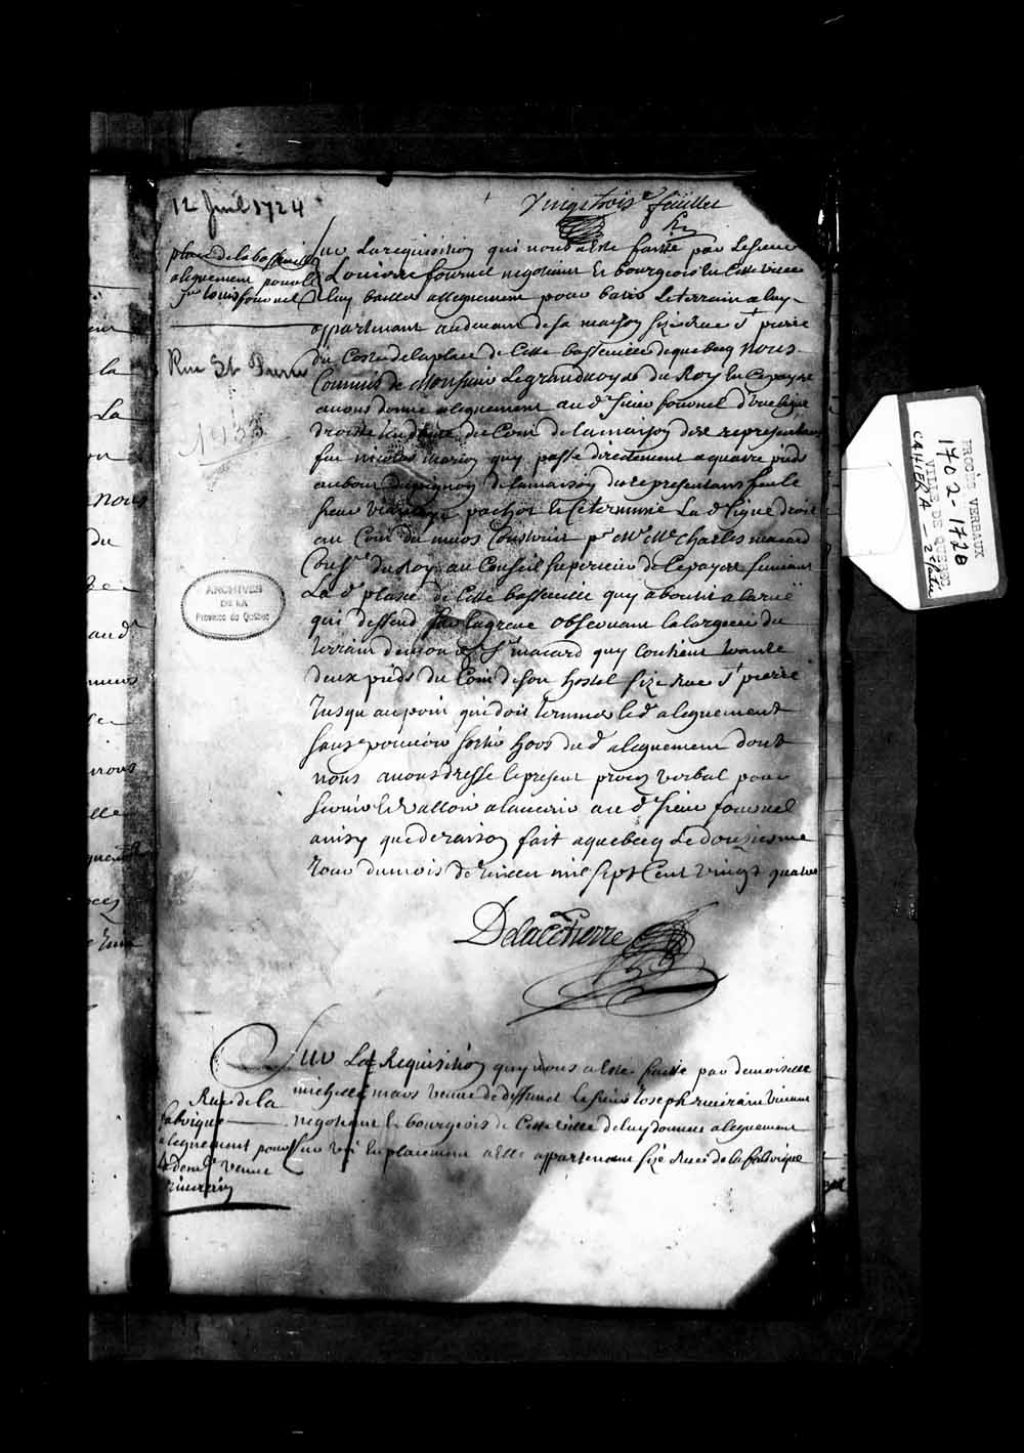 12 Juil 1724
Vingt trois.e feuillet
place de la basse ville
alignement pour le
Sr louis fournel
Rue St Pierre
1933
Sur La requisition qui nous a Este faitte par Le sieur
Louis fournel negotiant Et bourgeois En Cette ville
de luy bailler allignement pour batir Le terrain a luy
appartenant au devant de sa maison size Rue St pierre
du Costé de la place de Cette basse ville de quebecq Nous
Commis de Monsieur Le grand voyer du Roy En Ce payis
avons donné alignement au d. sieur fournel d'une ligne
droitte du Coin de la maison des representans
feu nicolas marion quy passe directement a quatre pieds
au bout du pignon de la maison des representans feu le
sieur pachot Et Ce termine La de ligne droite
au Coin du murs Construit pr Mr Me charles macard
Conser du Roy au Conseil superieur de Ce payis suivant
La de place de Cette basse ville quy aboutit a la rue
qui dessend sur la greve observant la largeur du
terrain de mon d. Sr macard quy Contient trante
deux pieds du Coin de son hostel size Rue St pierre
Jusqu au point qui doit terminer le d. alignement
sans pouvoir sortir hors du d. alignement dont
nous avons dressé le present procez verbal pour
servir Et valloir a lavenir au d. sieur fournel
ainsy que de raison fait a quebecq Le douziesme
Jour du mois de mil sept Cent vingt quatre
Delacetierre
ARCHIVES
DE LA
Province de Québec
Sur La Requisition quy nous a Este faitte par demoiselle
michelle mars veuve de deffunct Le sieur Joseph riverain vivant
negotiant Et bourgeois de Cette ville de luy donner alignement
sur un Emplacement a Elle appartenant size Rue de la fabrique
Rue de la
fabrique
alignement pour
la demlle veuve
riverain
la
La
nous
du
PROCÈS VERBAUX
1702-1728
VILLE DE QUEBEC
CAHIER A - 2e partie